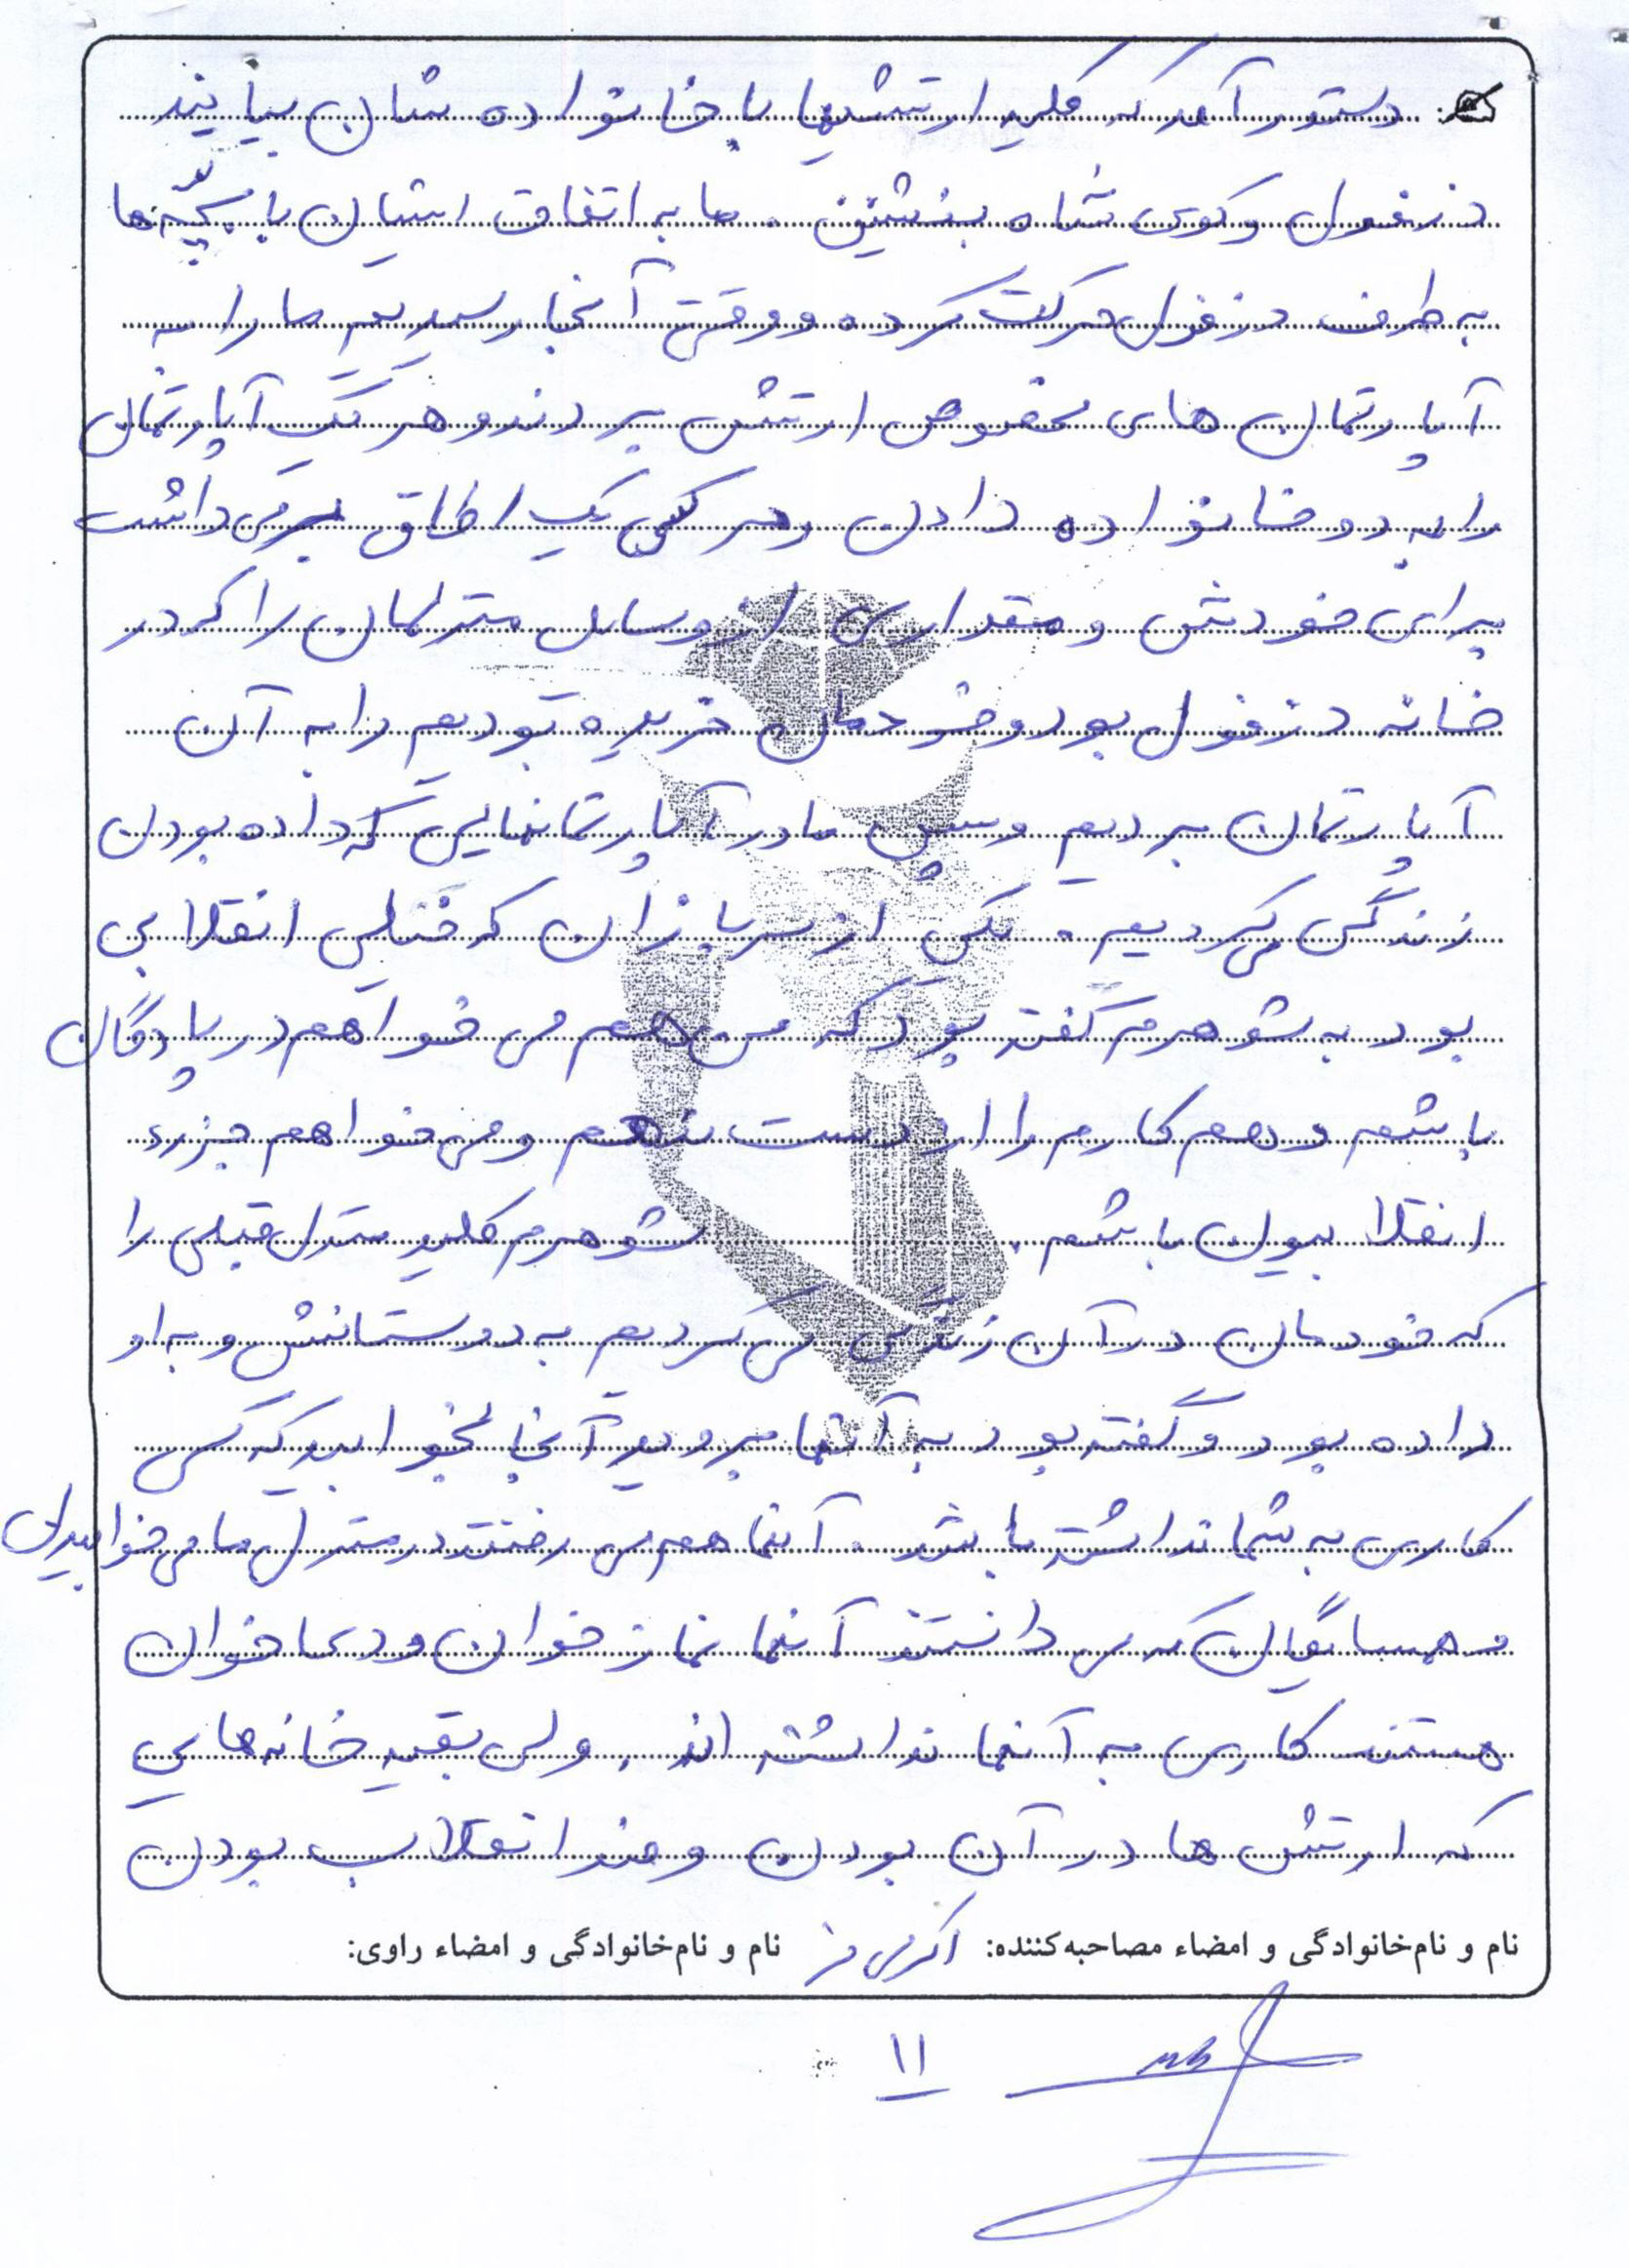 دستور آمد که کلیه ارتشیها با خانواده شان بیایند
دزفول و کوی شاه بنشینن . ما به اتفاق ایشان با بچّه ها
به طرف دزفول حرکت کرده و وقتی آنجا رسیدیم ما را به
آپارتمان های مخصوص ارتش بردند و هر یک آپارتمان
را به دو خانواده دادن و هر کسی یک اطاق برمی داشت
برای خودش و مقداری از وسایل منزلمان را که در
خانه دزفول بود و خودمان خریده بودیم را به آن
آپارتمان بردیم و سپس ما در آپارتمانهایی که داده بودن
زندگی می کردیم . یکی از سربازان که خیلی انقلابی
بود به شوهرم گفته بود که من هم می خواهم در پادگان
باشم و هم کارم را از دست ندهم و می خواهم جزء
انقلابیون باشم . شوهرم کلید منزل قبلی را
که خودمان در آن زندگی می کردیم به دوستانش و به او
داده بود و گفته بود به آنها بروید آنجا بخوابید که کسی
کاری به شما نداشته باشد . آنها هم می رفتند در منزل ما می خوابیدن
و همسایگان که می دانستند آنها نماز خوان و دعا خوان
هستند کاری به آنها نداشته اند . ولی بقیه خانه هایی
که ارتش ها در آن بودن و ضد انقلاب بودن
نام و نام‌خانوادگی و امضاء مصاحبه‌کننده: اکرمی فر نام و نام‌خانوادگی و امضاء راوی:
۱۱